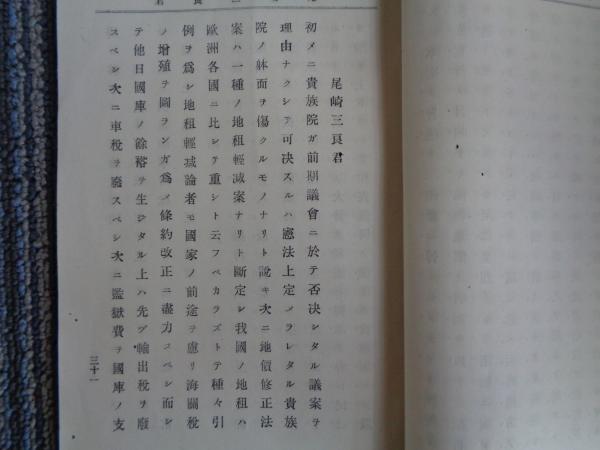 尾崎三良君
初メニ貴族院ガ前期議會ニ於テ否決シタル議案ヲ
理由ナクシテ可決スルハ憲法上定メラレタル貴族
院ノ躰面ヲ傷クルモノナリト說キ次ニ地價修正法
案ハ一種ノ地租輕減案ナリト斷定シ我國ノ地租ハ
歐洲各國ニ比シテ重シト云フベカラズトテ種々引
例ヲ爲シ地租輕减論者モ國家ノ前途ヲ慮リ海關稅
ノ增殖ヲ圖ランガ爲メ條約改正ニ盡力スベシ而シ
テ他日國庫ノ餘裕ヲ生ジタル上ハ先ヅ輸出稅ヲ廢
スベシ次ニ車稅ヲ廢スベシ次ニ監獄費ヲ國庫ノ支
三十一